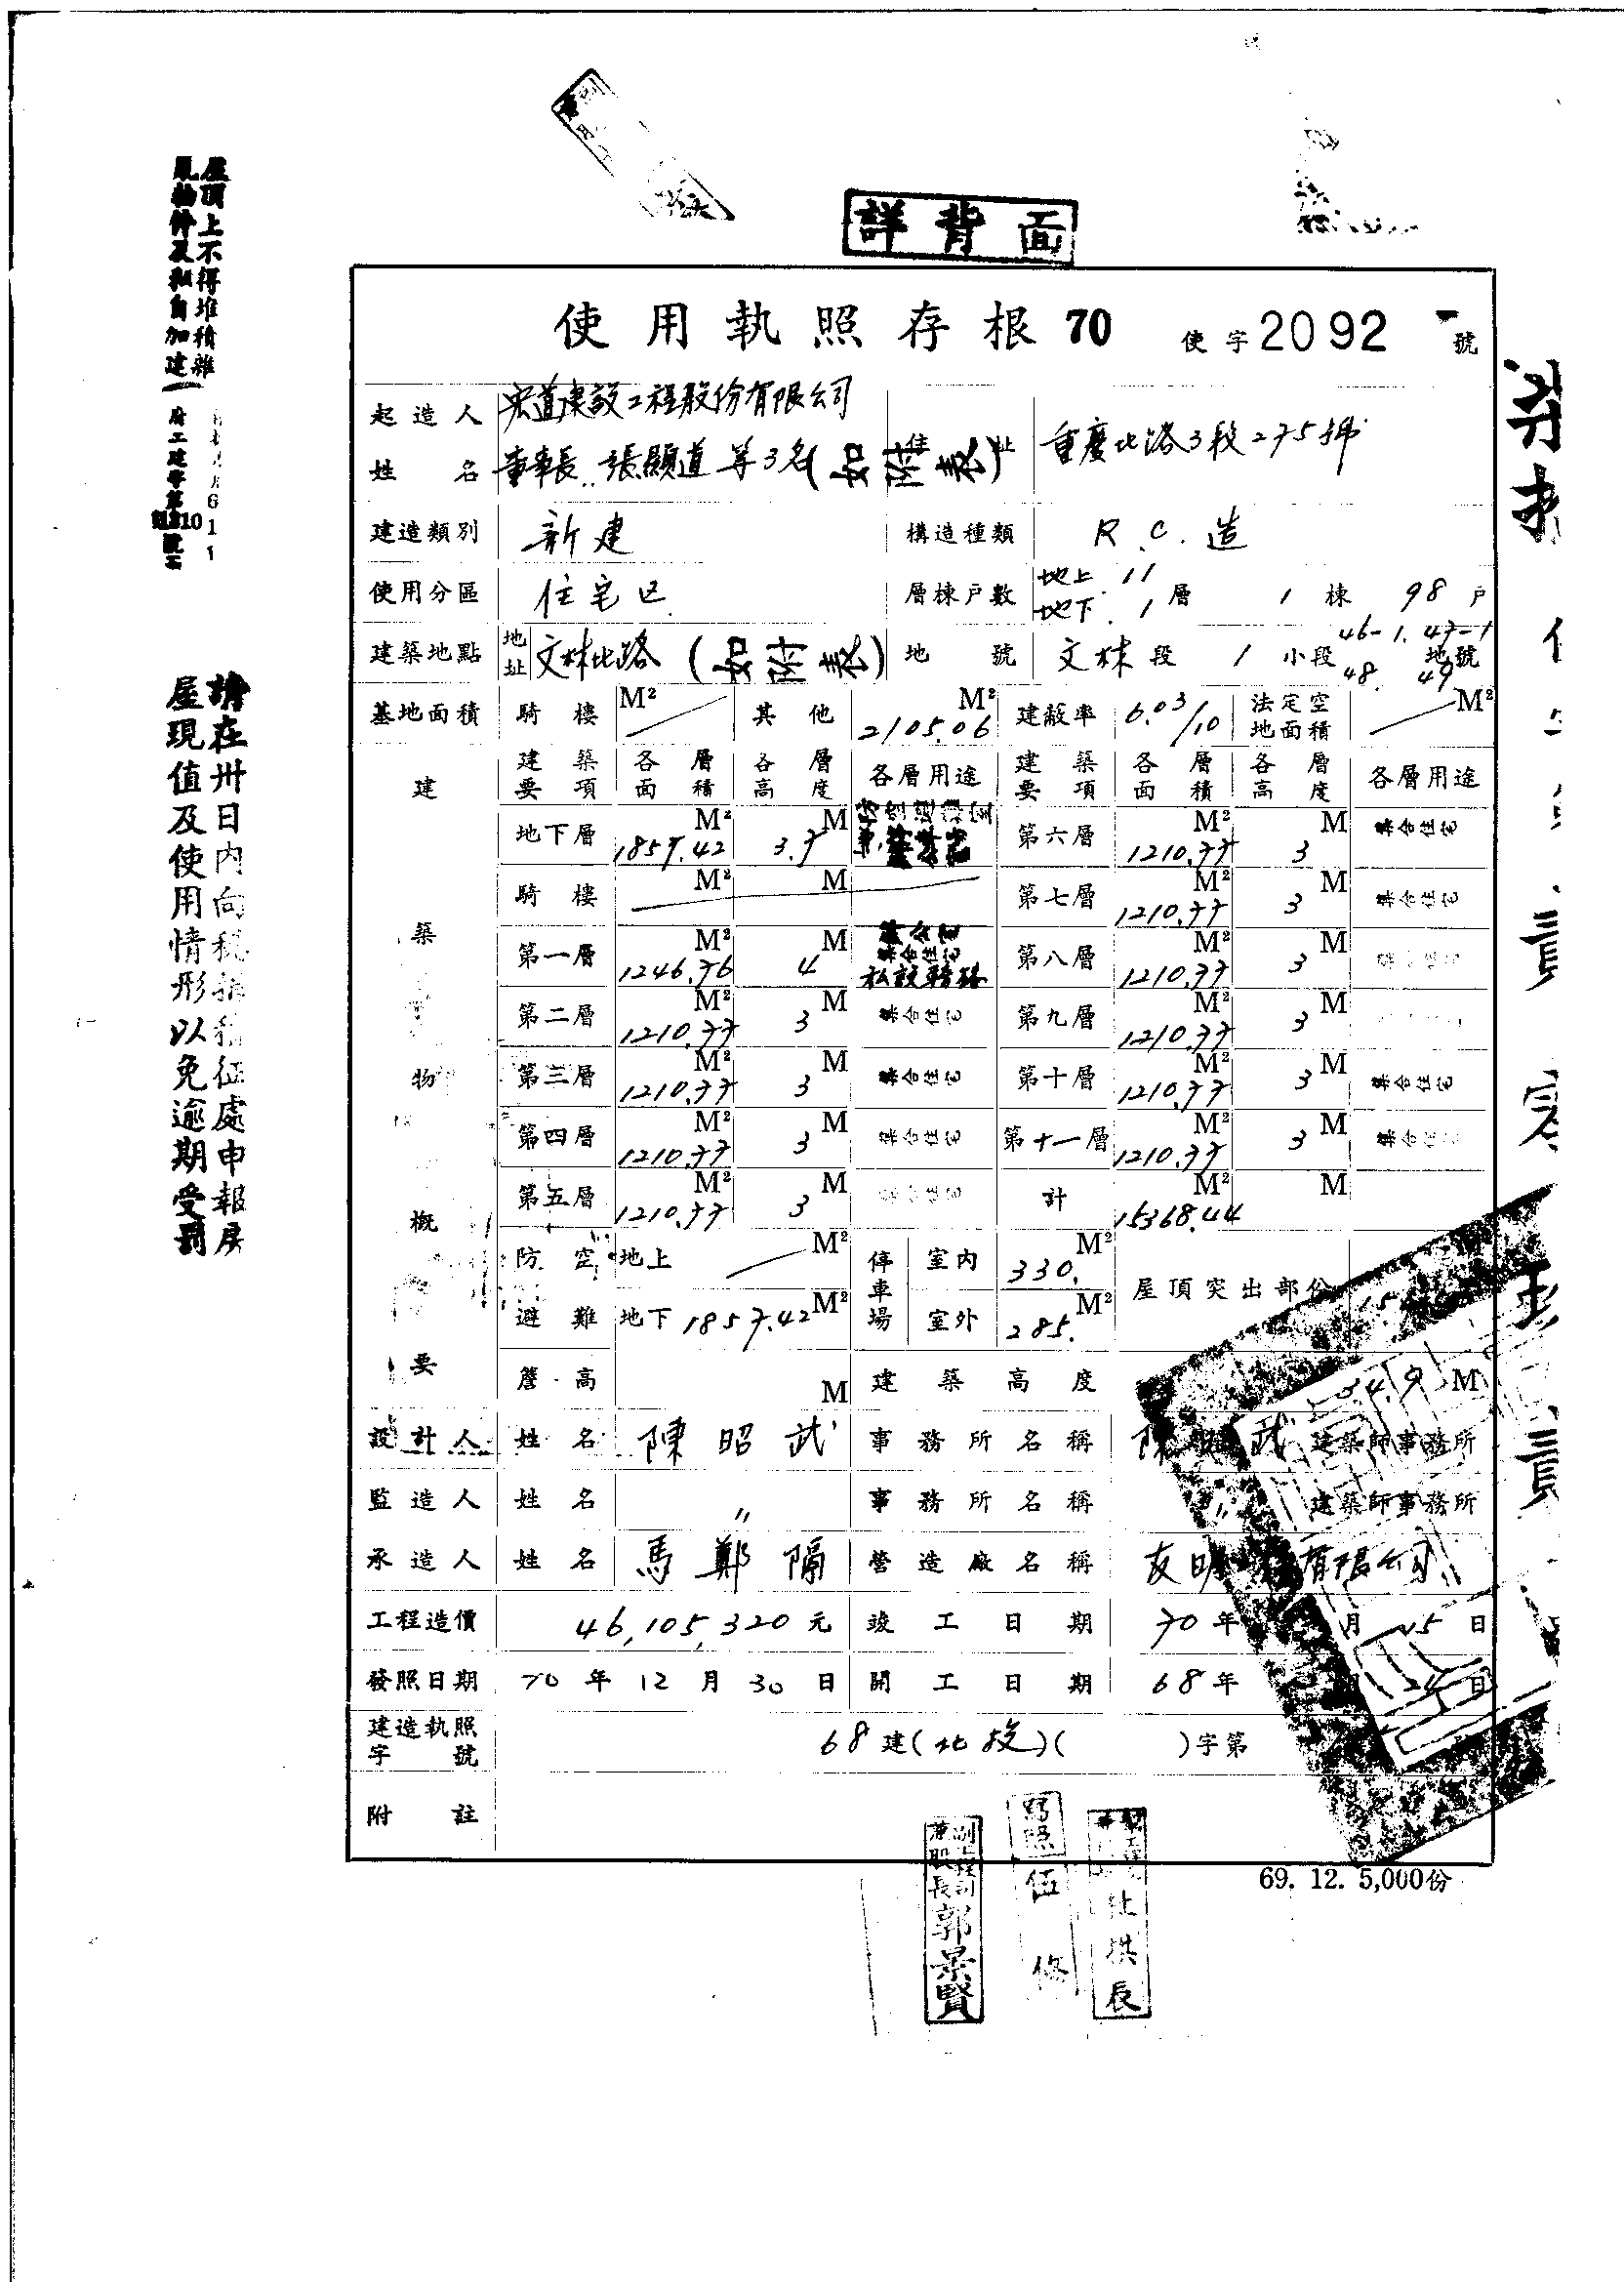 詳背面
使用執照存根 70 使字2092號
起造人姓名 宏道建設工程股份有限公司
董事長 張顯道 等3名(如附表) 住址 重慶北路3段275號
建造類別 新建 構造種類 R.C.造
使用分區 住宅区 層棟戶數 地上11層 地下1層 1棟 98戶
建築地點 地址 文林北路(如附表) 地號 文林段 1小段 46-1.47-1 48. 49地號
基地面積 騎樓 M² 其他 2105.06 M² 建蔽率 6.03/10 法定空地面積 M²
建築物概要
建築要項 各層面積 各層高度 各層用途 建築要項 各層面積 各層高度 各層用途
地下層 1857.42 M² 3.7 M 第六層 1210.77 M² 3 M 集合住宅
騎樓 M² M 第七層 1210.77 M² 3 M 集合住宅
第一層 1246.76 M² 4 M 集合住宅 第八層 1210.77 M² 3 M 集合住宅
第二層 1210.77 M² 3 M 集合住宅 第九層 1210.77 M² 3 M
第三層 1210.77 M² 3 M 集合住宅 第十層 1210.77 M² 3 M 集合住宅
第四層 1210.77 M² 3 M 集合住宅 第十一層 1210.77 M² 3 M 集合住宅
第五層 1210.77 M² 3 M 集合住宅 計 15368.44 M² M
防空避難 地上 M² 停車場 室內 330. M² 屋頂突出部份
地下 1857.42 M² 室外 285. M²
簷高 M 建築高度 34.9 M
設計人 姓名 陳昭武 事務所名稱 陳昭武 建築師事務所
監造人 姓名 〃 事務所名稱 〃 建築師事務所
承造人 姓名 馬鄭隔 營造廠名稱 友明 有限公司
工程造價 46,105,320元 竣工日期 70年 月15日
發照日期 70年12月30日 開工日期 68年 24日
建造執照字號 68建(北投)( )字第
附註
69. 12. 5,000份
兼股長 郭景賢
屋頂上不得堆積雜
亂物件及私自加建
府工建字第
請在卅日內向稅捐稽征處申報房
屋現值及使用情形以免逾期受罰